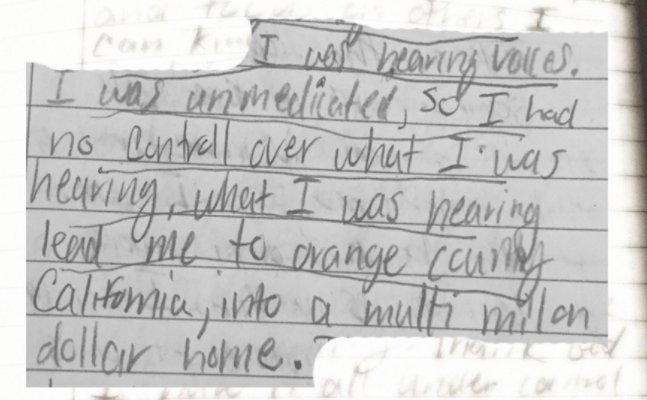 I
can
I was hearing voices.
I was unmediicated, so I had
no controll over what I was
hearing, what I was hearing
lead me to orange county
California, into a multi milon
dollar home.
all under control